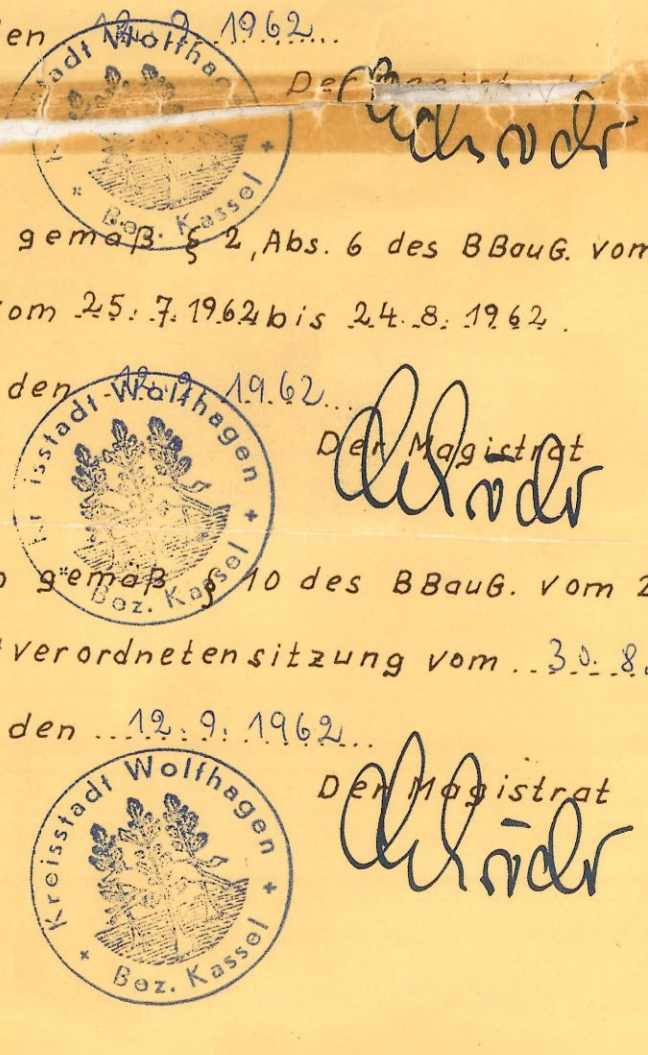 den 12. 9. 1962
Der Magistrat
Kreisstadt Wolfhagen
Bez. Kassel
gemäß § 2, Abs. 6 des BBauG. vom
vom 25. 7. 1962 bis 24. 8. 1962.
den 12. 9. 1962
Kreisstadt Wolfhagen
Bez. Kassel
Der Magistrat
gemäß § 10 des BBauG. vom 2
verordnetensitzung vom 30. 8.
den 12. 9. 1962
Kreisstadt Wolfhagen
Bez. Kassel
Der Magistrat